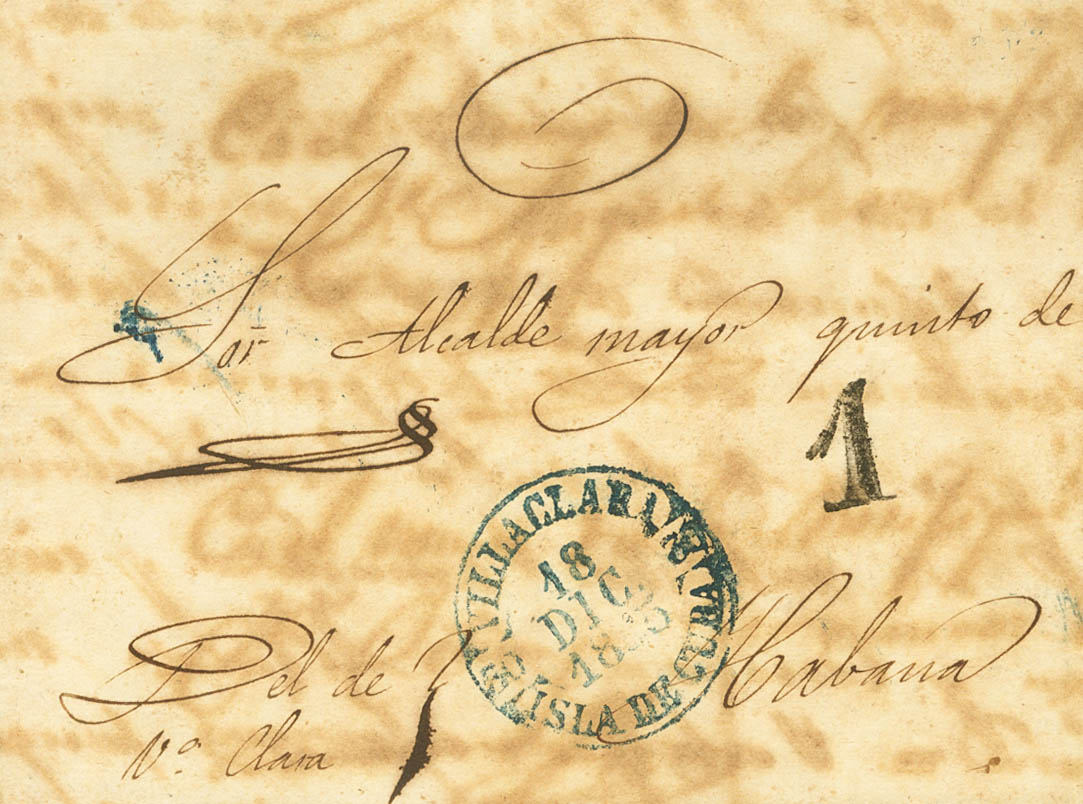 Sor. Alcalde mayor quinto de
1
VILLACLARA
18
DIC
ISLA DE CUBA
Habana
Del de
Va. Clara